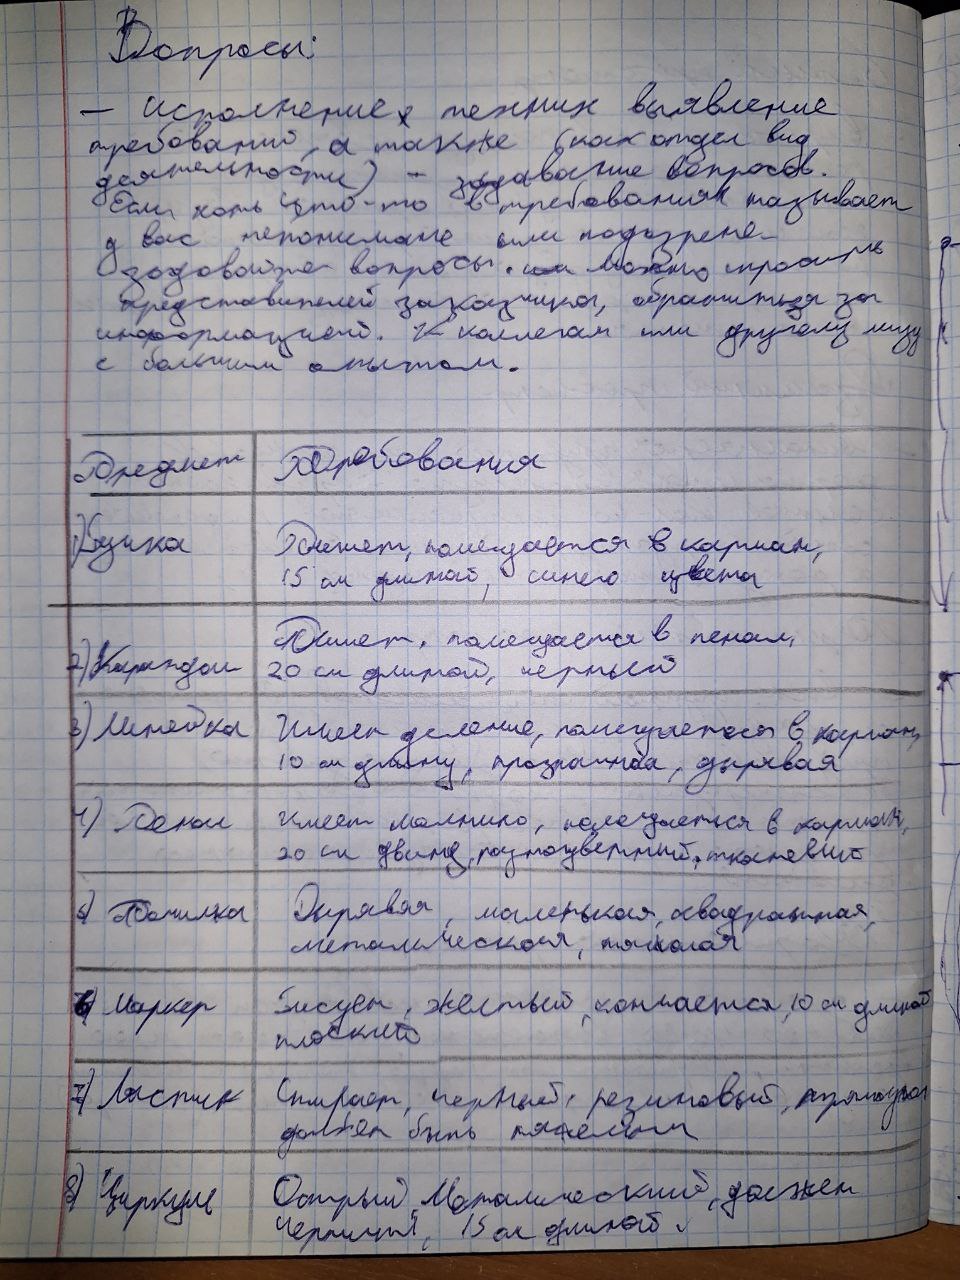 Вопросы:
— Исполнение техник выявление
требований, а также (как отдел вид
деятельности) - задавание вопросов.
Если хоть что-то в требованиях вызывает
у вас непонимание или подозрение-
задовайте вопросы. Можно спросить
представителей заказчика, обратиться за
информацией. К коллегам или другому лицу
с большим опытом.
Предмет Требования
1) Ручка Пишет, помещается в карман,
15 см длиной, синего цвета
Пишет, помещается в пенал,
2) Карандаш 20 см длиной, черный
3) Линейка Имеет деление, помещается в карман,
10 см длину, прозрачная, дырявая
4) Пенал Имеет молнию, помещается в карман,
20 см длину, разноцветный, тканевый
5) Точилка Дырявая, маленькая, квадратная,
металическая, тяжолая
6) Маркер Рисует, желтый, кончается, 10 см длиной
плоский
7) Ластик Стирает, черный, резиновый,
должен быть тяжелым
8) Циркуль Острый, Металический, должен
15 см длиной